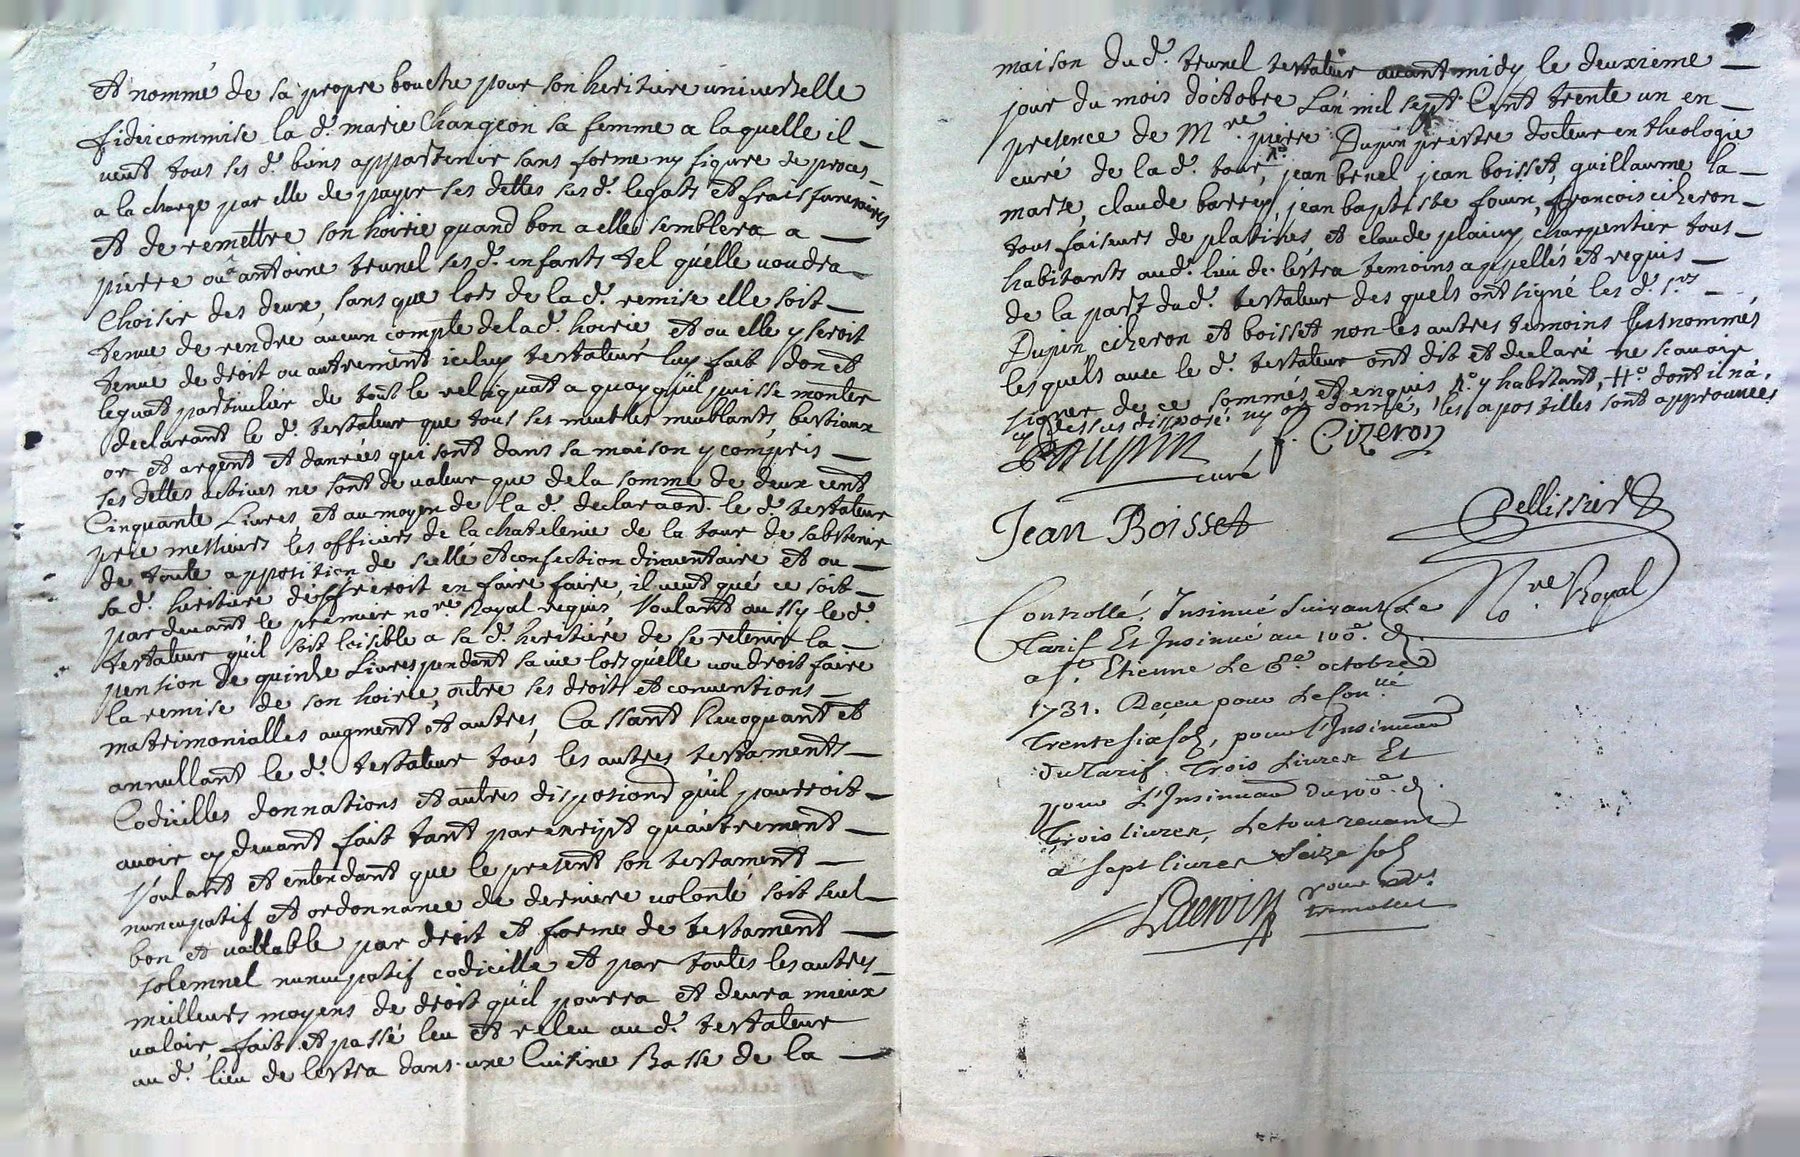 et nommé de sa propre bouche pour son heritiere universelle
fideicommise la d.^e marie Changeon sa femme a laquelle il
veut tous ses d.^s biens appartenir sans forme ny figure de proces
a la charge par elle de payer ses dettes ses d.^s legats et frais funeraires
et de remettre son hoirie quand bon a elle semblera a
pierre ou a antoine brunel ses d.^s enfants tel qu'elle voudra
Choisir des deux, sans que lors de la d.^e remise elle soit
tenue de rendre aucun compte de la d.^e hoirie et ou elle y seroit
tenue de droit ou autrement iceluy testateur luy fait don et
legat particulier de tout le reliquat a quoy qu'il puisse monter
declarant le d.^t testateur que tous ses meubles meublants, bestiaux
or et argent et danrées qui sont dans sa maison y compris
ses dettes actives ne sont de valeur que de la somme de deux cent
Cinquante Livres et au moyen de la d.^e declaraon le d.^t testateur
prie messieurs les officiers de la chatelenie de la tour de sabstenir
de toute apposition de scellé et confection d'inventaire et ou
sa d.^e heritiere desireroit en faire faire, il veut que ce soit
par devant le premier no.^re Royal requis, voulant aussy le d.^t
testateur qu'il soit loisible a sa d.^e heritiére de se retenir la
pension de quinze Livres pendant sa vie lors qu'elle voudroit faire
la remise de son hoirie, outre ses droits et conventions
matrimonialles augment et autres, Cassant Revoquant et
annullant le d.^t testateur tous les autres testaments
Codicilles donnations et autres disposions qu'il pourroit
avoir cy devant fait tant par escript qu'autrement
voulant et entendant que le present son testament
nuncupatif et ordonnance de derniere volonté soit seul
bon et vallable par droit et forme de testament
solemnel nuncupatif codicille et par toutes les autres
meilleurs moyens de droit qu'il pourra et devra mieux
valoir, fait et passé leu et releu au d.^t testateur
au d.^t lieu de lestra dans une Cuisine Basse de la
maison du d.^t brunel testateur avant midy le deuxieme
jour du mois d'octobre L'an mil sept Cent trente un en
presence de M.^re pierre Dupin prestre docteur en theologie
curé de la d.^e tour, jean brnel jean boisset, guillaume la
marte, claude barrey, jean baptiste fourn, francois ciheron
tous faiseurs de platines et claude plainy charpentier tous
habitants au d.^t lieu de lestra temoins appellés et requis
de la part du d.^t testateur des quels ont signé les d.^s s.^rs
Dupin ciheron et boisset non les autres temoins susnommés
lesquels avec le d.^t testateur ont dit et declaré ne scavoir
signer de ce sommés et enquis, y habitant, dont il n'a
cy dessus disposé ny donné, les apostilles sont approuvées
Dupin
curé
f. Cizeron
Jean Boisset
Pellissier
No.^re Royal
Controllé, Insinué suivant Le
Tarif Et Insinué au 100.^e d.
a S.^t Etienne Le 6.^e octobre
1731. Receu pour Le Con.^llé
Trente six sols, pour L'Insinuaon
du Tarif Trois Livres Et
pour L'Insinuaon du 100.^e d.
Trois livres, Le tout revenant
a sept livres seize sols